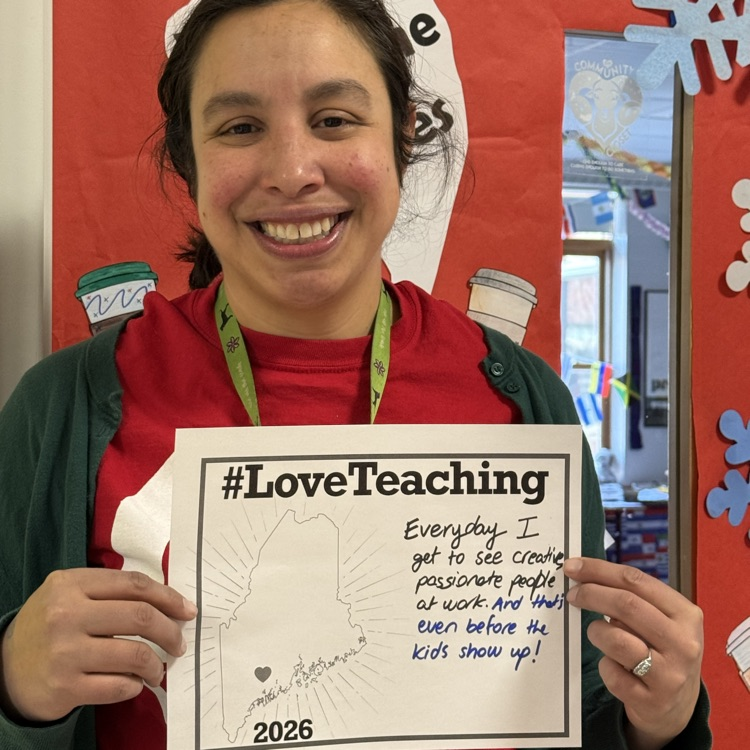 e
es
COMMUNITY
#LoveTeaching
Everyday I
get to see creative,
passionate people
at work. And that's
even before the
kids show up!
2026